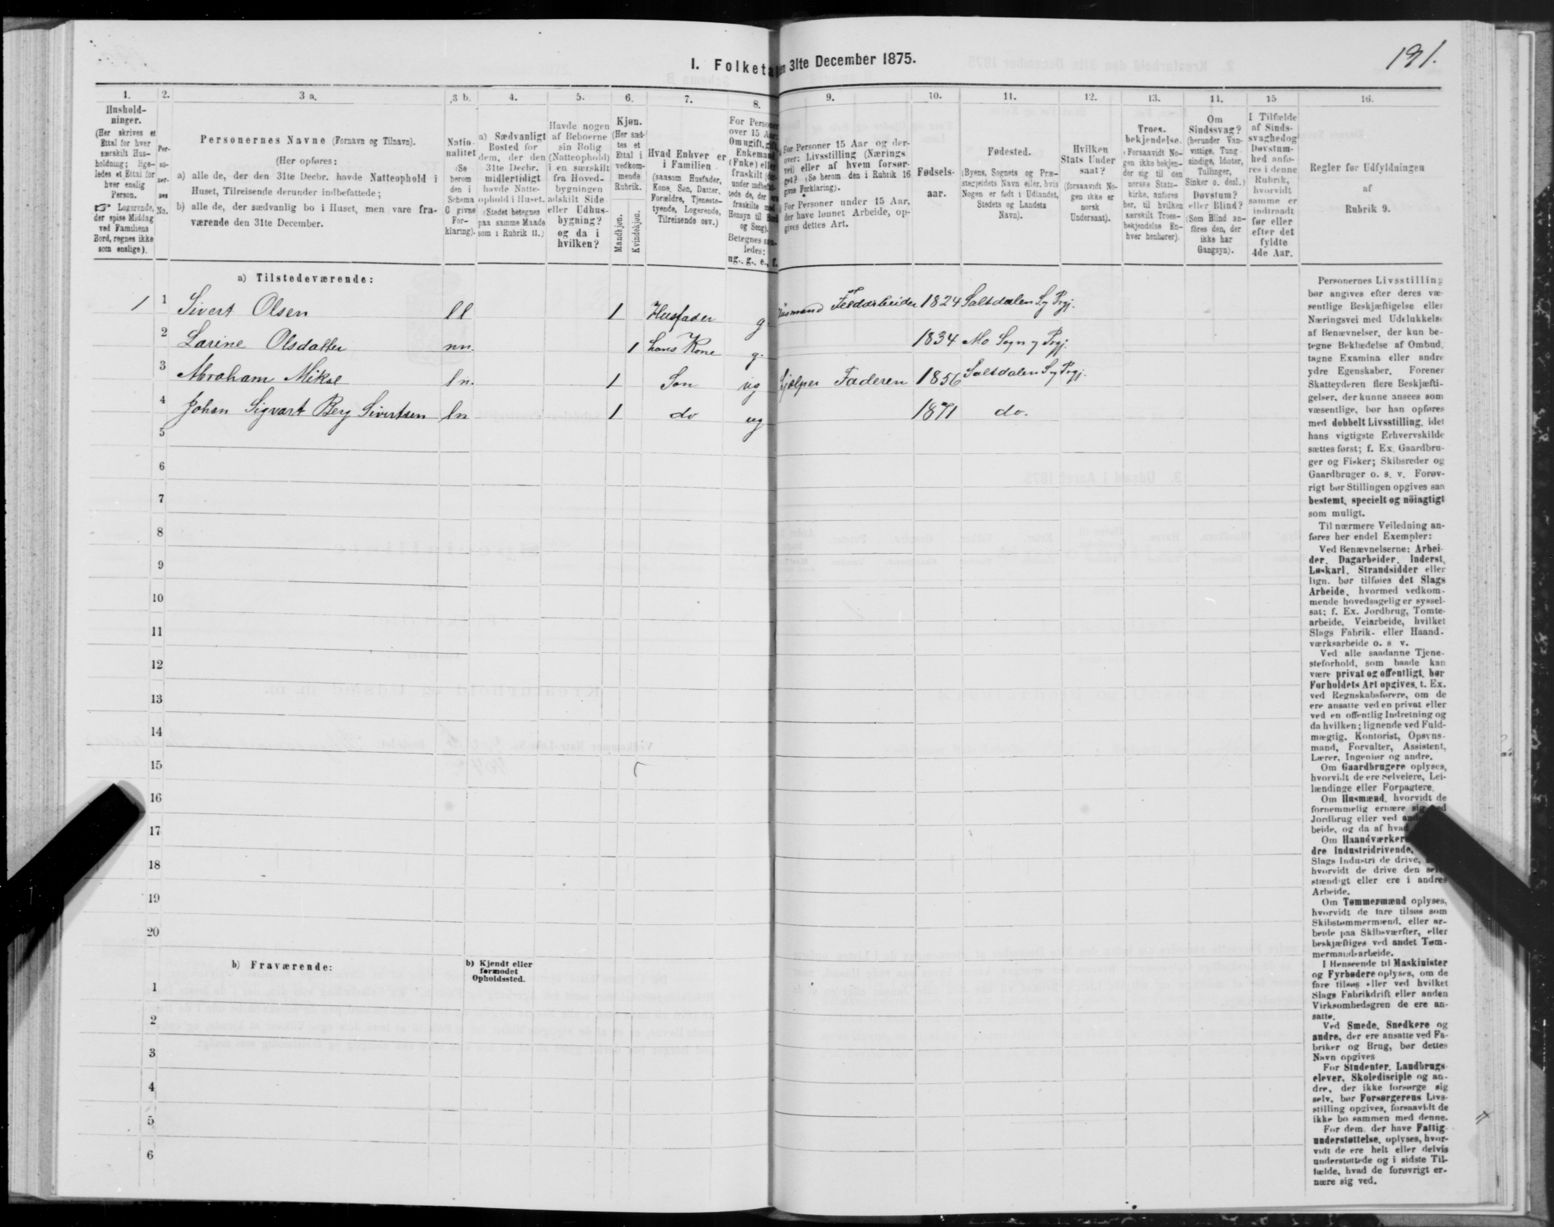 191.
I. Folketa en 31te December 1875.
1.
Hushold-
ninger.
(Her skrives et
Ettal for hver
særskilt Hus-
holdning; lige-
ledes et Ettal for
hver enslig
Person.
☞ Logerende,
der spise Middag
ved Familiens
Bord, regnes ikke
som enslige).
2.
Per-
so-
ner-
nes
No.
3 a.
Personernes Navne (Fornavn og Tilnavn).
(Her opføres:
a) alle de, der den 31te Decbr. havde Natteophold i
Huset, Tilreisende derunder indbefattede;
b) alle de, der sædvanlig bo i Huset, men vare fra-
værende den 31te December.
3 b.
Natio-
nalitet
(Se
herom
den i
Schema
O givne
For-
klaring).
4.
a) Sædvanligt
Bosted for
dem, der den
31te Decbr.
midlertidigt
havde Natte-
ophold i Huset.
(Stedet betegnes
paa samme Maade
som i Rubrik 11.)
5.
Havde nogen
af Beboerne
sin Bolig
(Natteophold)
i en særskilt
fra Hoved-
bygningen
adskilt Side
eller Udhus-
bygning?
og da i
hvilken?
6.
Kjøn.
(Her sæt-
tes et
Ettal i
vedkom-
mende
Rubrik.
Mandkjøn.
Kvindekjøn.
7.
Hvad Enhver er
i Familien
(saasom Husfader,
Kone, Søn, Datter,
Forældre, Tjeneste-
tyende, Logerende,
Tilreisende osv.)
8.
For Perso
over 15
Om ugift,
Enkemand
(Enke) eller
fraskilt
Betegnes
ledes:
ug., g., e., f.
9.
For Personer 15 Aar og der-
over: Livsstilling (Nærings
vei) eller af hvem forsør-
get? (Se herom den i Rubrik 16
givne Forklaring).
For Personer under 15 Aar,
der have lønnet Arbeide, op-
gives dettes Art.
10.
Fødsels-
aar.
11.
Fødested.
(Byens, Sognets og Præ-
stegjeldets Navn eller, hvis
Nogen er født i Udlandet,
Stedets og Landets
Navn).
12.
Hvilken
Stats Under
saat?
(forsaavidt No-
gen ikke er
norsk
Undersaat).
13.
Troes-
bekjendelse.
(Forsaavidt No-
gen ikke bekjen-
der sig til den
norske Stats-
kirke, anføres
her, til hvilken
særskilt Troes-
bekjendelse En-
hver henhører).
14.
Om
Sindssvag?
(herunder Van-
vittige, Tung-
sindige, Idioter,
Tullinger,
Sinker o. desl.)
Døvstum?
eller Blind?
(Som Blind an-
føres den, der
ikke har
Gangsyn).
15
I Tilfælde
af Sinds-
svaghed og
Døvstum-
hed anfø-
res i denne
Rubrik,
hvorvidt
samme er
indtraadt
før eller
efter det
fyldte
4de Aar.
16.
Regler for Udfyldningen
af
Rubrik 9.
a) Tilstedeværende:
1 1 Sivert Olsen ll 1 Husfader g Husmand Feldarbeider 1824 Saltdalen S y Prgj.
2 Larine Olsdatter nn. 1 hans Kone g. 1834 Mo Sogn y Prgj.
3 Abraham Mikal ln. 1 Søn ug Hjælper Faderen 1856 Saltdalen S y Prgj.
4 Johan Sigvart Berg Sivertsen ln 1 do ug 1871 do.
5
6
7
8
9
10
11
12
13
14
15
16
17
18
19
20
b) Fraværende:
b) Kjendt eller
formodet
Opholdssted.
1
2
3
4
5
6
Personernes Livsstilling
bør angives efter deres væ-
sentlige Beskjæftigelse eller
Næringsvei med Udelukkelse
af Benævnelser, der kun be-
tegne Beklædelse af Ombud,
tagne Examina eller andre
ydre Egenskaber. Forener
Skatteyderen flere Beskjæfti-
gelser, der kunne ansees som
væsentlige, bør han opføres
med dobbelt Livsstilling, idet
hans vigtigste Erhvervskilde
sættes først; f. Ex. Gaardbru-
ger og Fisker; Skibsreder og
Gaardbruger o. s. v. Forøv-
rigt bør Stillingen opgives saa
bestemt, specielt og nöiagtigt
som muligt.
Til nærmere Veiledning an-
føres her endel Exempler:
Ved Benævnelserne: Arbei-
der, Dagarbeider, Inderst,
Løskarl, Strandsidder eller
lign. bør tilføies det Slags
Arbeide, hvormed vedkom-
mende hovedsagelig er syssel-
sat; f. Ex. Jordbrug, Tomte-
arbeide, Veiarbeide, hvilket
Slags Fabrik- eller Haand-
værksarbeide o. s v.
Ved alle saadanne Tjene-
steforhold, som baade kan
være privat og offentligt, bør
Forholdets Art opgives, t. Ex.
ved Regnskabsførere, om de
ere ansatte ved en privat eller
ved en offentlig Indretning og
da hvilken; lignende ved Fuld-
mægtig, Kontorist, Opsyns-
mand, Forvalter, Assistent,
Lærer, Ingeniør og andre.
Om Gaardbrugere oplyses,
hvorvidt de ere Selveiere, Lei-
lændinge eller Forpagtere.
Om Husmænd, hvorvidt de
fornemmelig ernære sig ved
Jordbrug eller ved
beide, og da af hvad
Om Haandværkere
dre Industridrivende,
Slags Industri de drive,
hvorvidt de drive den
stændigt eller ere i andres
Arbeide.
Om Tømmermænd oplyses,
hvorvidt de fare tilsøs som
Skibstømmermænd, eller ar-
beide paa Skibsværfter, eller
beskjæftiges ved andet Tøm-
mermandsarbeide.
I Henseende til Maskinister
og Fyrbødere oplyses, om de
fare tilsøs eller ved hvilket
Slags Fabrikdrift eller anden
Virksomhedsgren de ere an-
satte.
Ved Smede, Snedkere og
andre, der ere ansatte ved Fa-
briker og Brug, bør dettes
Navn opgives
For Studenter, Landbrugs-
elever, Skoledisciple og an-
dre, der ikke forsørge sig
selv, bør Forsørgerens Livs-
stilling opgives, forsaavidt de
ikke bo sammen med denne.
For dem, der have Fattig-
understøttelse, oplyses, hvor-
vidt de ere helt eller delvis
understøttede og i sidste Til-
fælde, hvad de forøvrigt er-
nære sig ved.